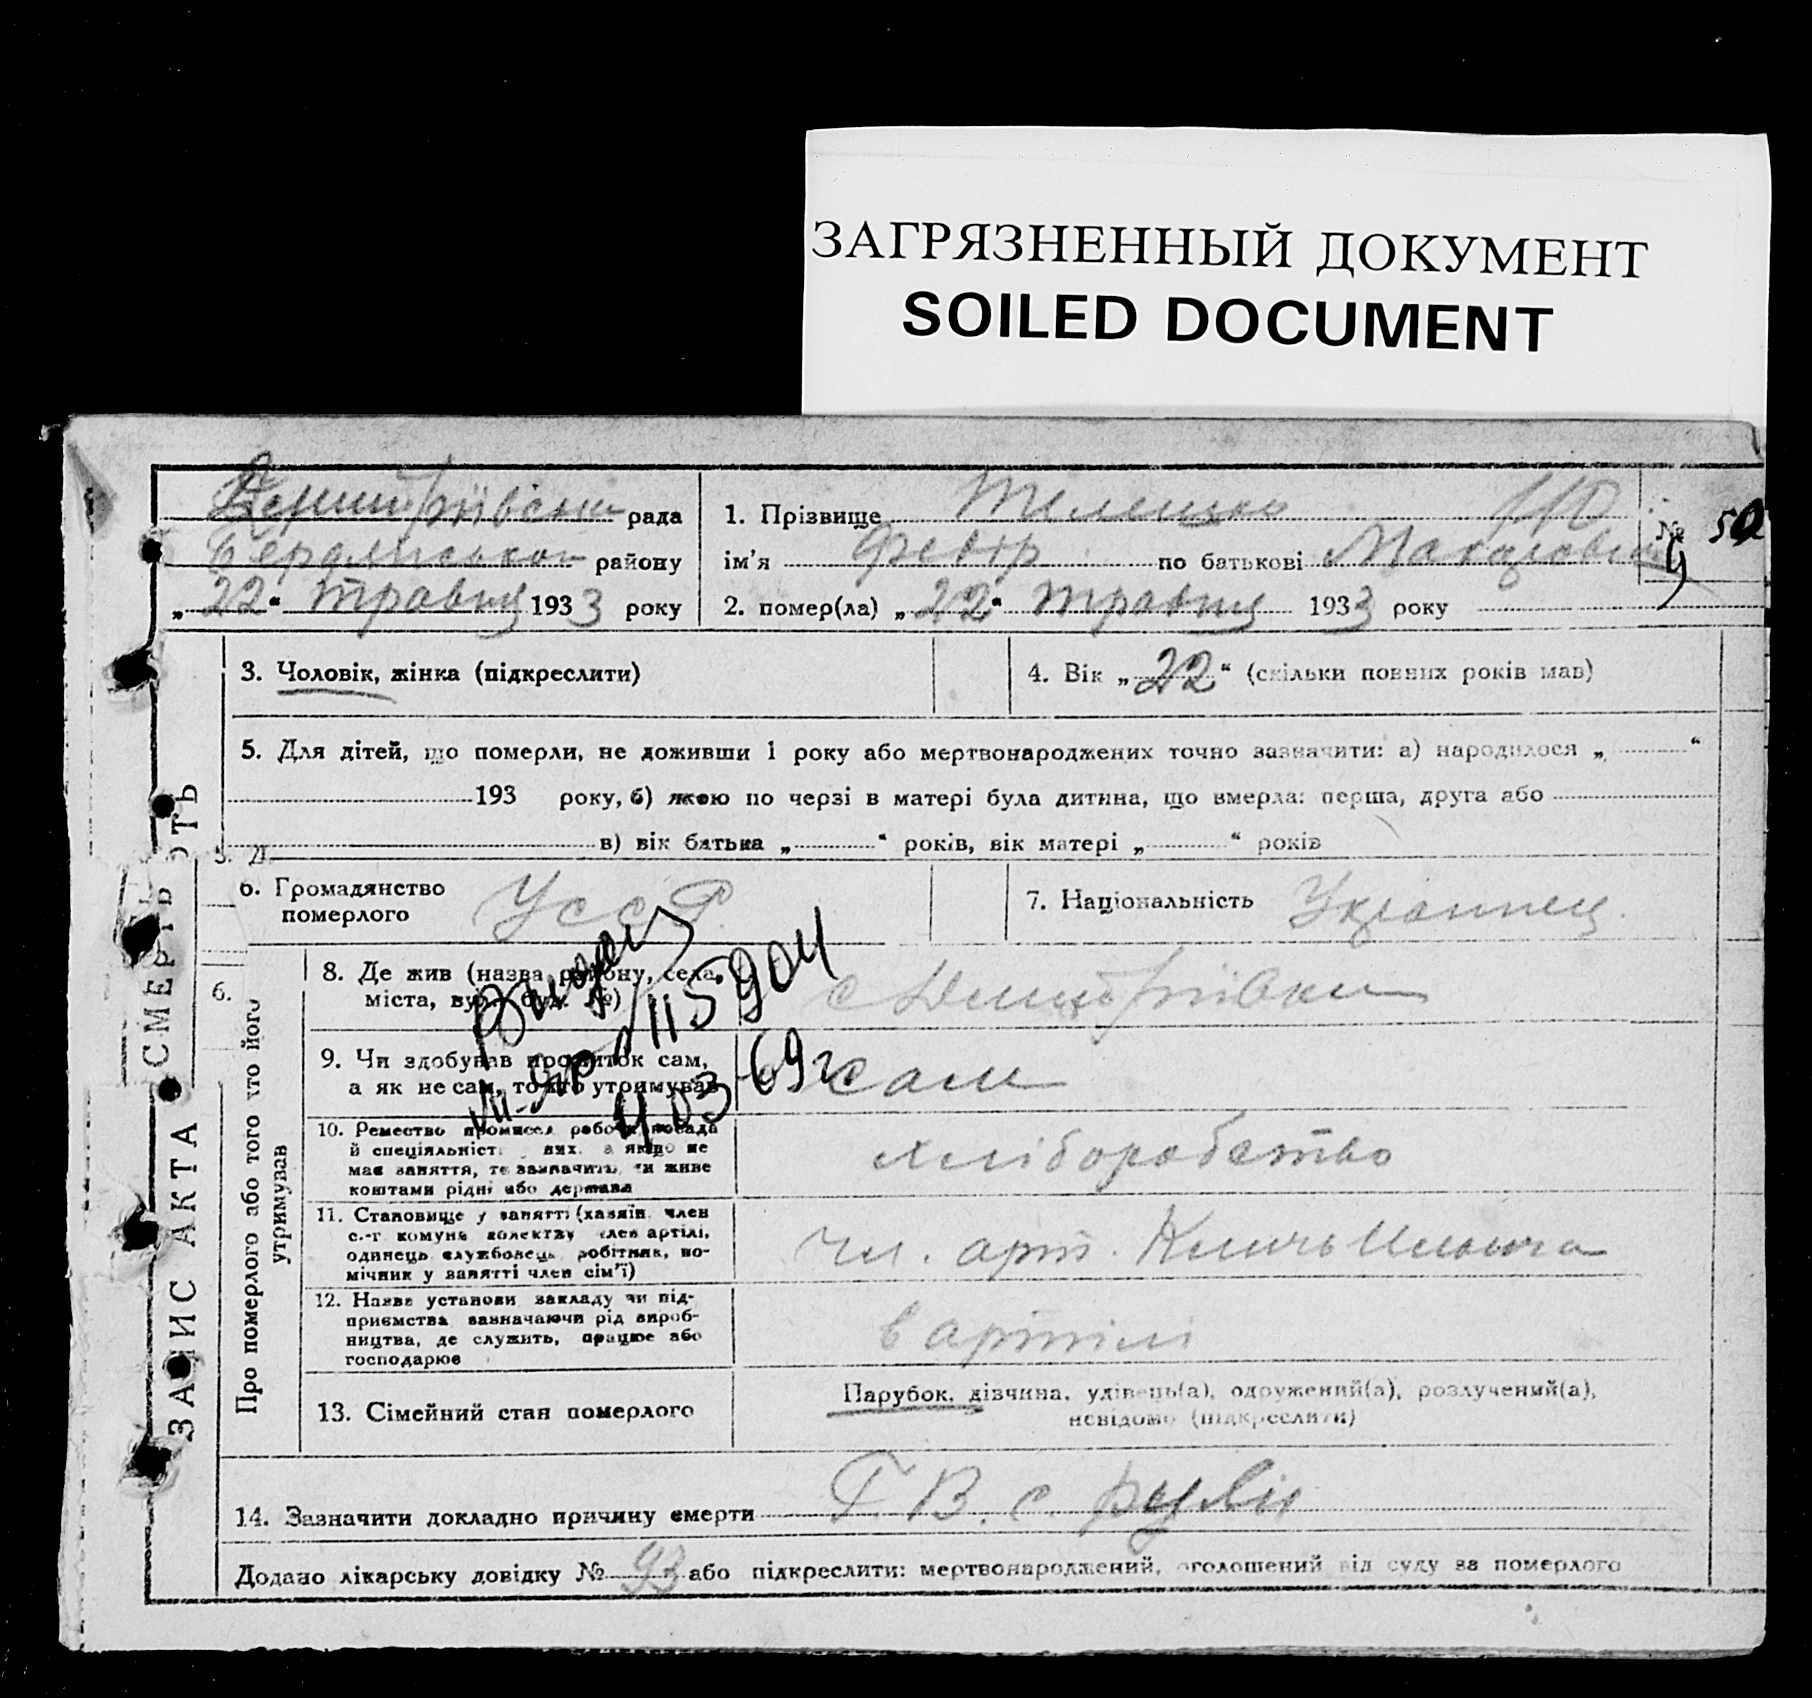 ЗАГРЯЗНЕННЫЙ ДОКУМЕНТ
SOILED DOCUMENT
рада
району
„22“ травня 1933 року
1. Прізвище
ім'я Федір по батькові Макарович
2. помер(ла) „22“ травня 1933 року
№ 50
3. Чоловік, жінка (підкреслити)
4. Вік „22“ (скільки повних років мав)
5. Для дітей, що померли, не доживши 1 року або мертвонароджених точно зазначити: а) народилося „ “
193 року, б) якою по черзі в матері була дитина, що вмерла: перша, друга або
в) вік батька „ “ років, вік матері „ “ років
6. Громадянство
померлого
УССР
7. Національність Украинец
ЗАПИС АКТА СМЕРТЬ
6.
Про померлого або того хто його
утримував
8. Де жив (назва району, села,
міста, вул., буд. №)
с Дмитріївки
9. Чи здобував прожиток сам,
а як не сам, то хто утримував
сам
115904
4 03 69 г.
10. Ремество промисел робота посада
й спеціяльність а якщо не
мав заняття, те зазначить, чи живе
коштами рідні або держава
хліборобство
11. Становище у занятті (хазяїн член
с.-г комуни колективу член артілі,
одинець службовець робітник, по-
мічник у занятті член сім'ї)
чл. арт.
12. Назва установи закладу чи під-
приємства зазначаючи рід вироб-
ництва, де служить, працює або
господарює
в артілі
13. Сімейний стан померлого
Парубок, дівчина, удівець(а), одружений(а), розлучений(а),
невідомо (підкреслити)
14. Зазначити докладно причину смерти
Додано лікарську довідку № 93 або підкреслити: мертвонароджений, оголошений від суду за померлого